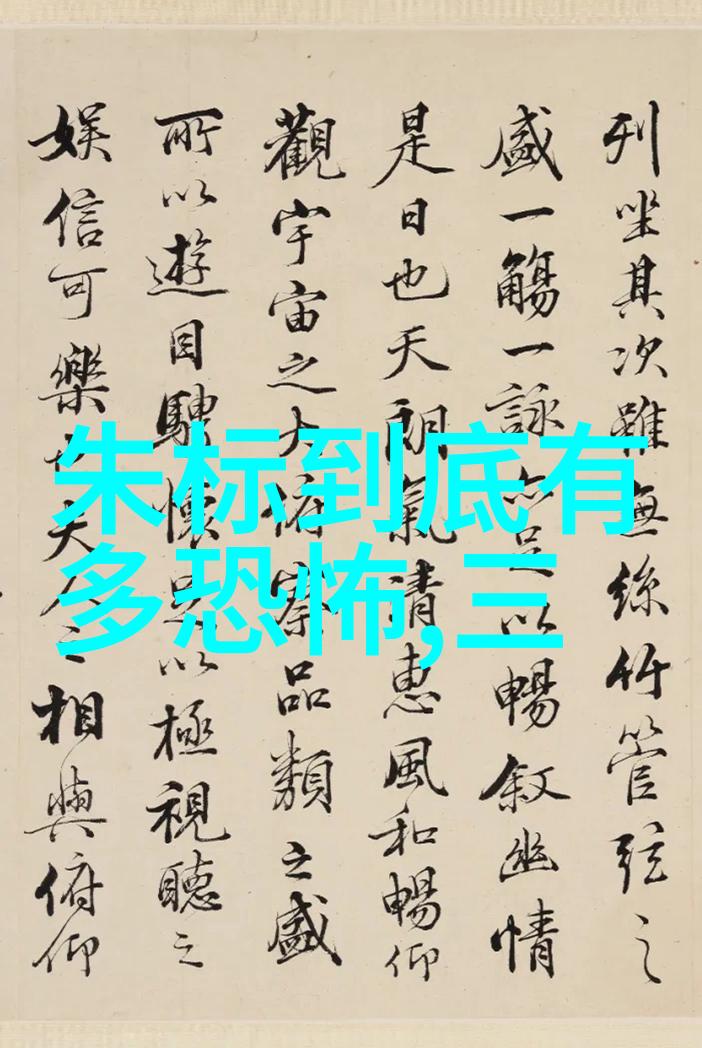 列坐其次雖無絲竹管弦之
盛一觴一詠亦足以暢叙幽情
是日也天朗氣清惠風和暢仰
觀宇宙之大俯察品類之盛
所以遊目騁懷足以極視聽之
娛信可樂也夫人之相與俯仰
朱标到底有
多恐怖,三